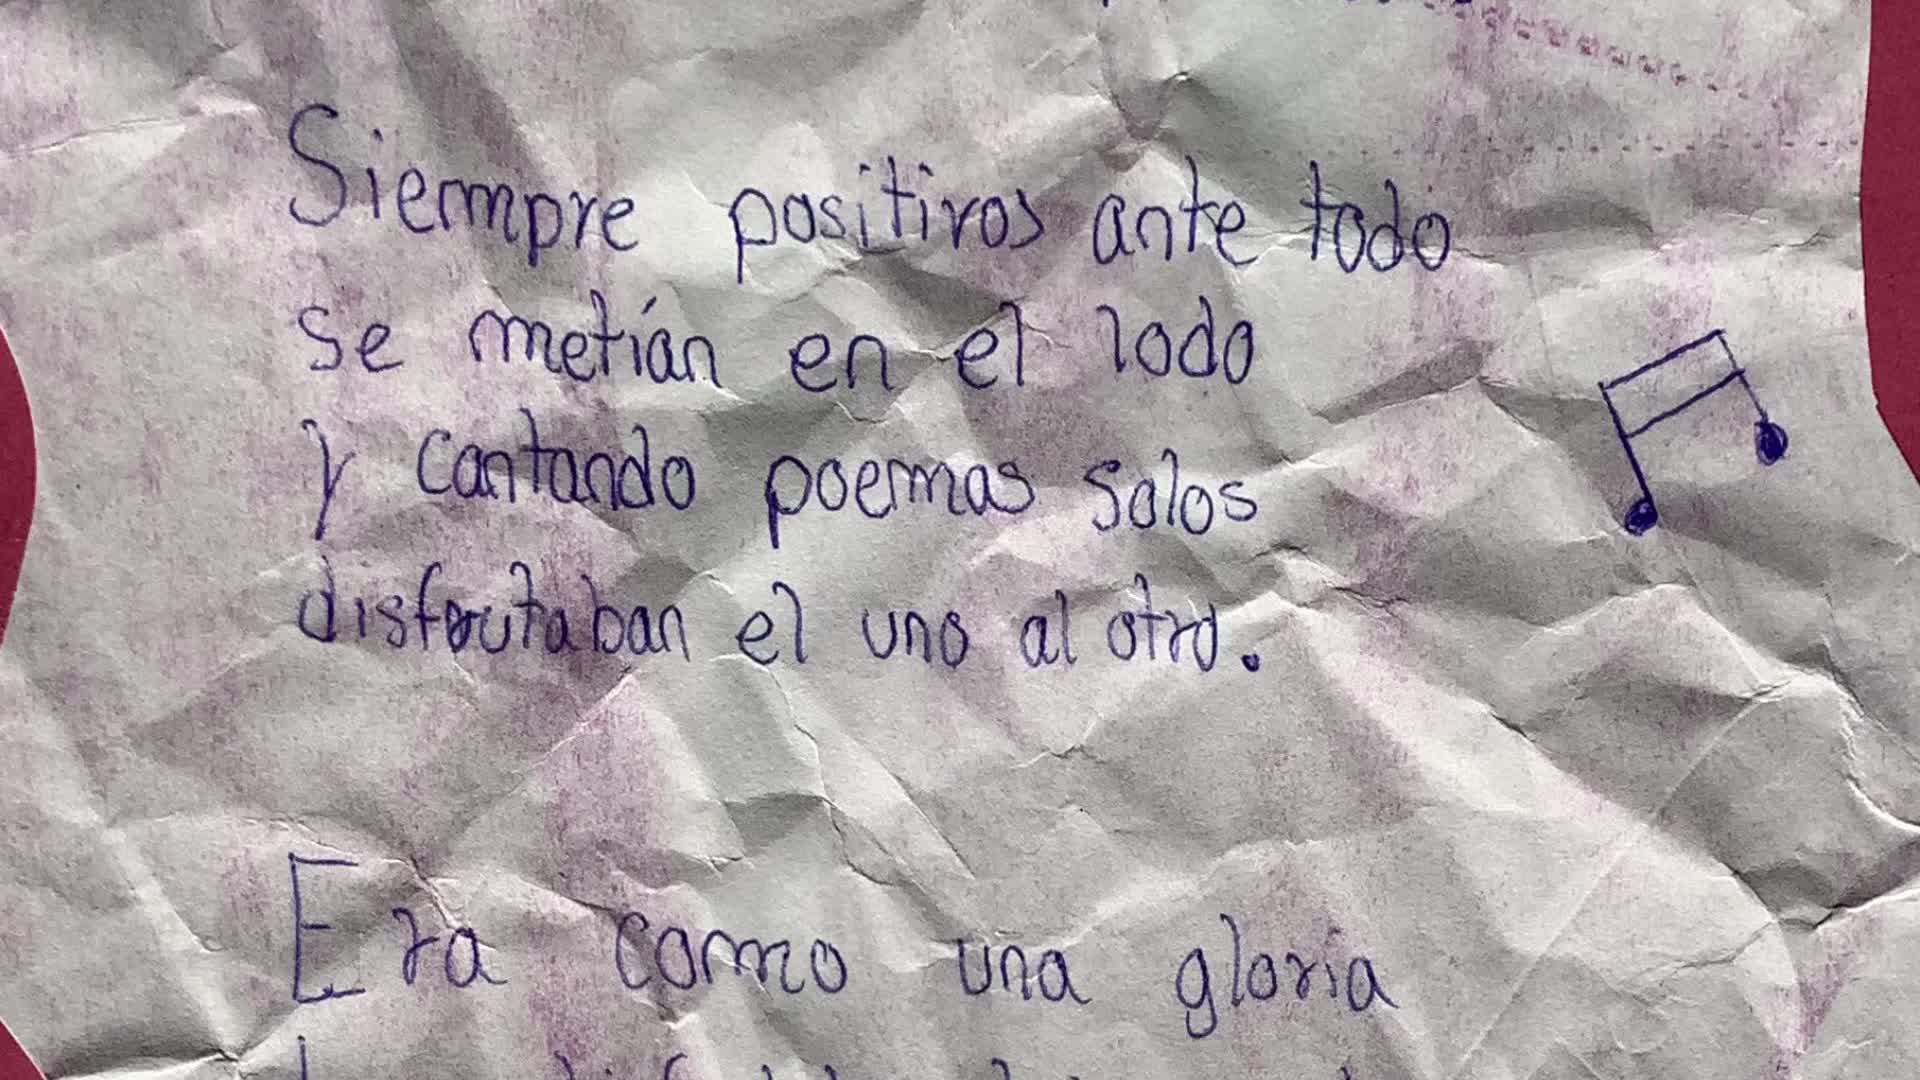 Siempre positivos ante todo
se metían en el lodo
y cantando poemas solos
disfrutaban el uno al otro.
Era como una gloria